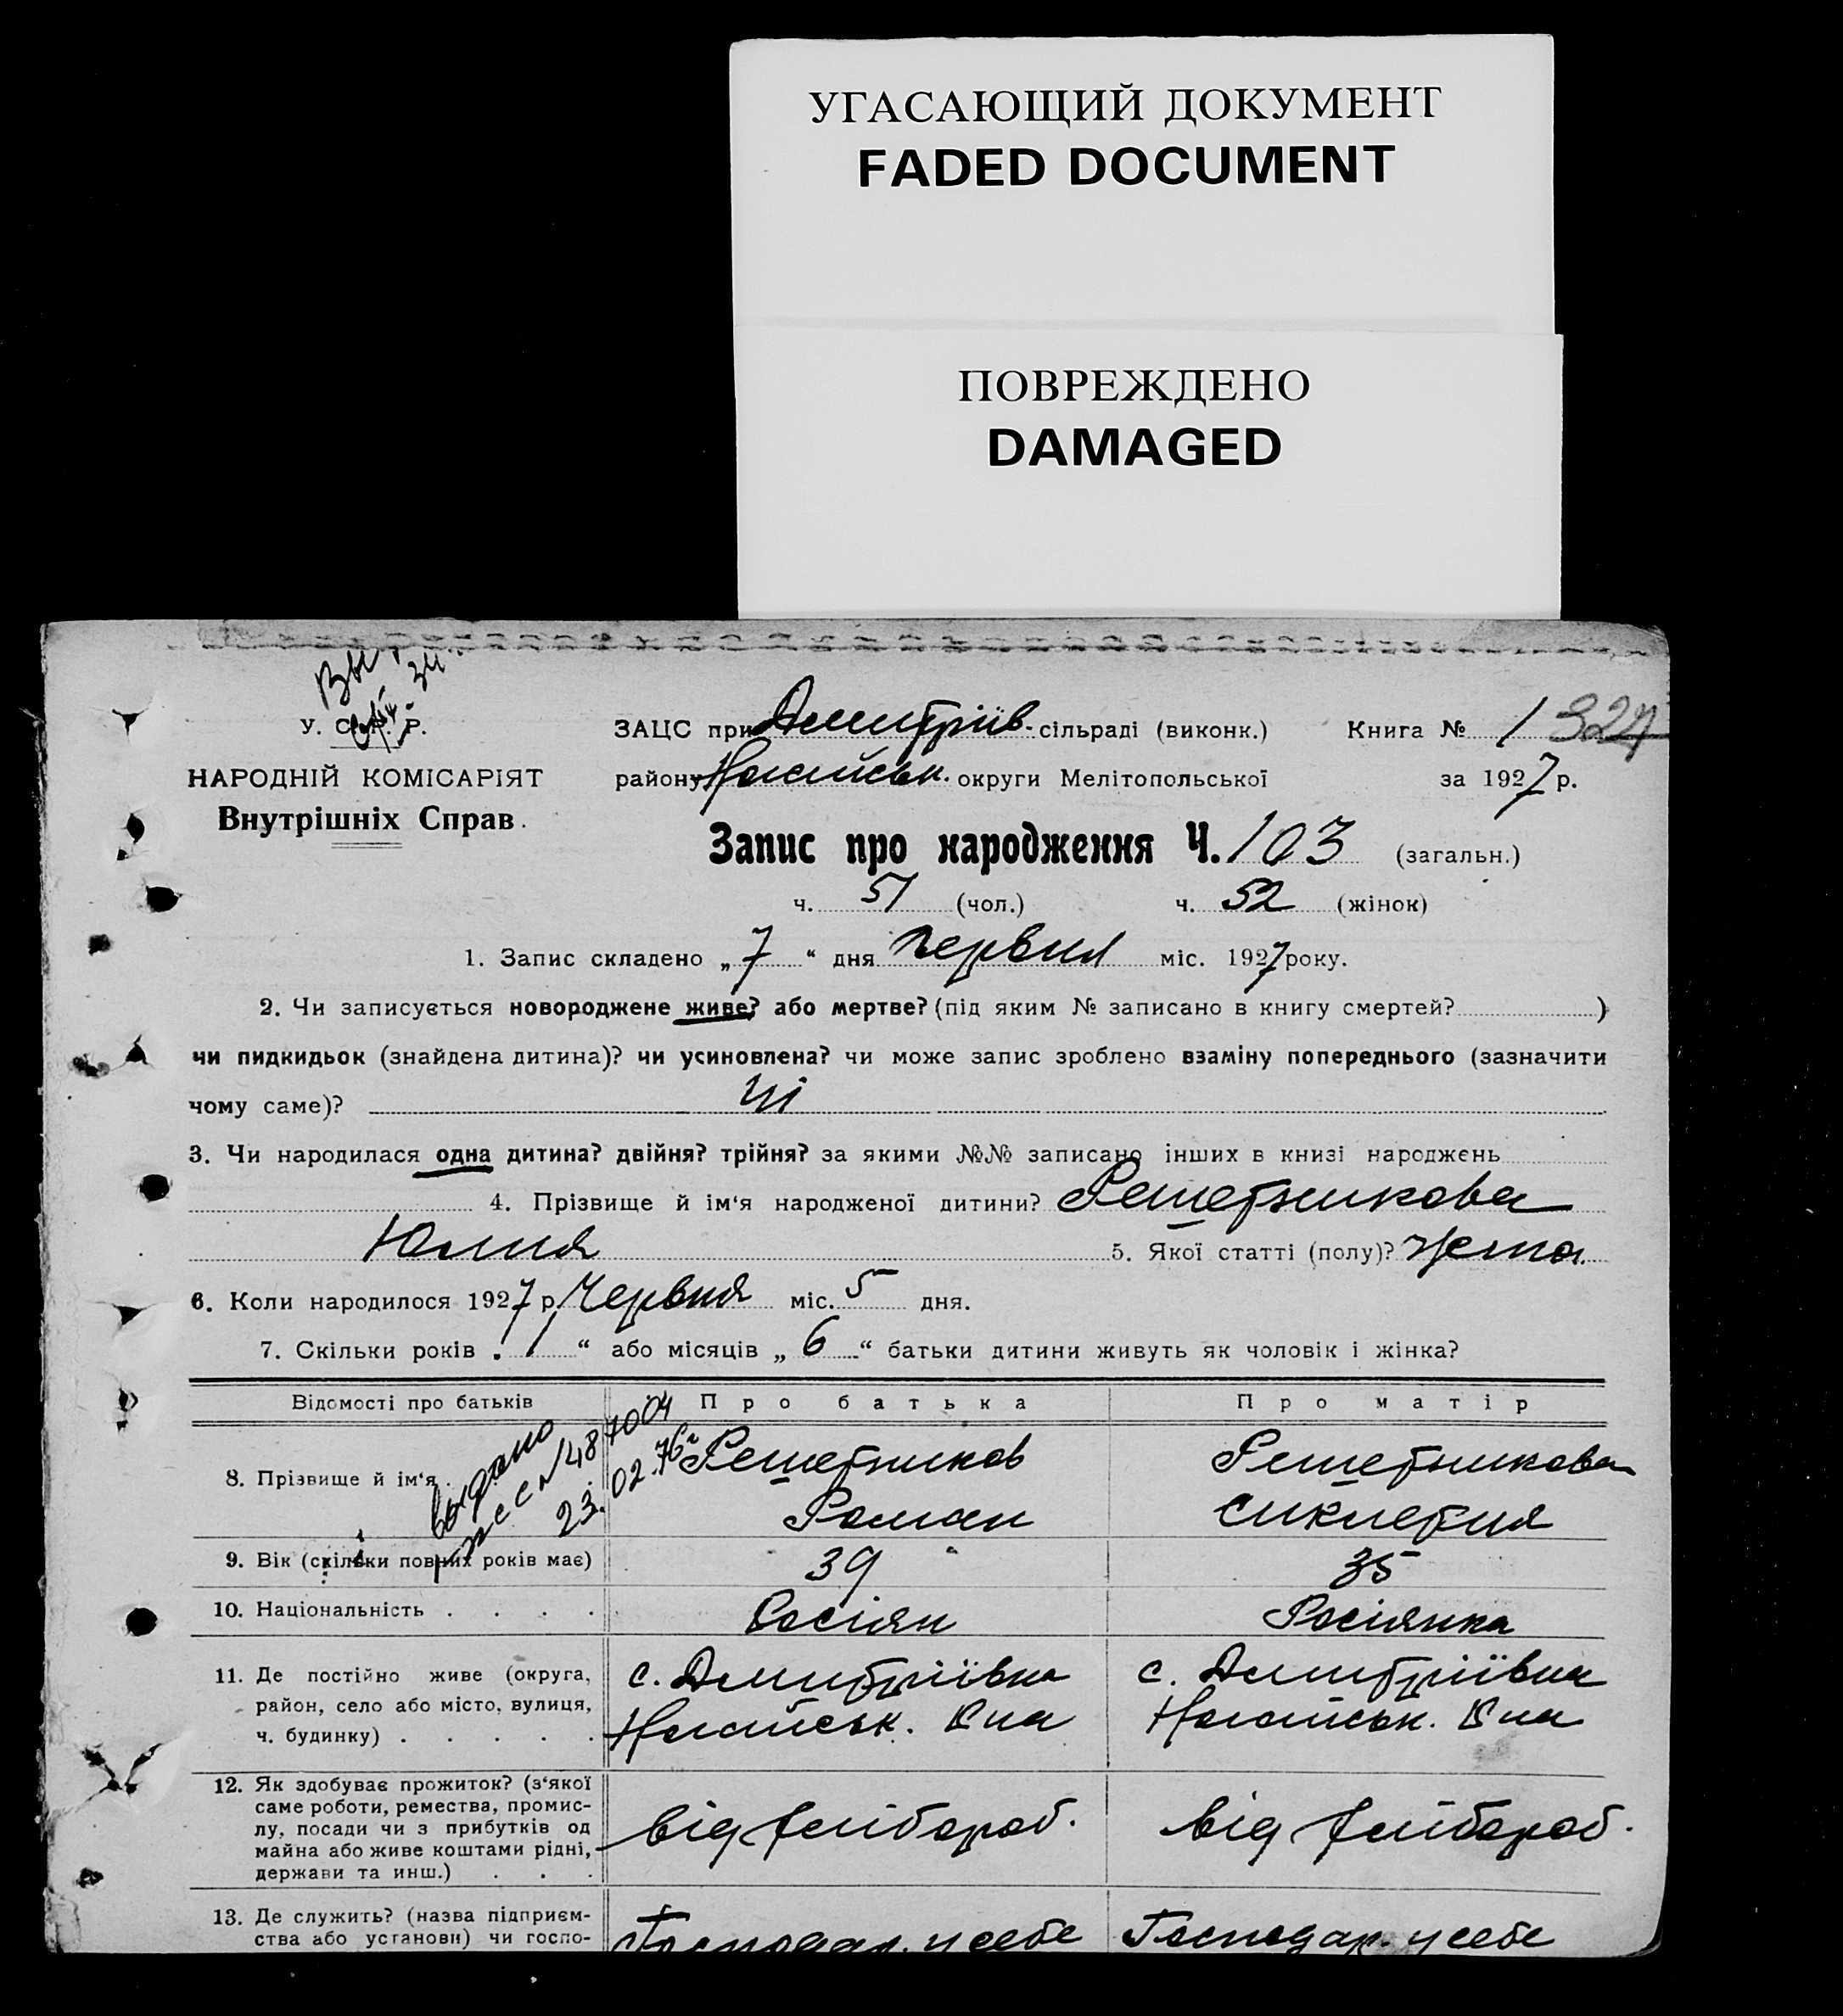 УГАСАЮЩИЙ ДОКУМЕНТ
FADED DOCUMENT
ПОВРЕЖДЕНО
DAMAGED
У. С. Р. Р.
НАРОДНІЙ КОМІСАРІЯТ
Внутрішніх Справ.
ЗАЦС при Дмитріїв. сільраді (виконк.) Книга № 1 327
району Ногайськ. округи Мелітопольської за 1927 р.
Запис про народження Ч. 103 (загальн.)
ч. 51 (чол.) ч. 52 (жінок)
1. Запис складено „ 7 “ дня Червня міс. 1927 року.
2. Чи записується новороджене живе? або мертве? (під яким № записано в книгу смертей? )
чи пидкидьок (знайдена дитина)? чи усиновлена? чи може запис зроблено взаміну попереднього (зазначити
чому саме)? Ні
3. Чи народилася одна дитина? двійня? трійня? за якими №№ записано інших в книзі народжень
4. Прізвище й ім‘я народженої дитини? Решетникова
Юлия 5. Якої статті (полу)? Жіноч.
6. Коли народилося 1927 р. Червня міс. 5 дня.
7. Скільки років „ 1 “ або місяців „ 6 “ батьки дитини живуть як чоловік і жінка?
Відомості про батьків Про батька Про матір
выдано
№ 487004
23.02.76г
8. Прізвище й ім‘я . Решетников Решетникова
Роман Сиклетия
9. Вік (скільки повних років має) 39 35
10. Національність . . . . Росіян Росіянка
11. Де постійно живе (округа, с. Дмитріївка с. Дмитріївка
район, село або місто, вулиця,
ч. будинку) . . . . . Ногайськ. Р-на Ногайськ. Р-на
12. Як здобуває прожиток? (з‘якої
саме роботи, ремества, промис-
лу, посади чи з прибутків од від хлібороб. від хлібороб.
майна або живе коштами рідні,
держави та инш.) . . .
13. Де служить? (назва підприєм-
ства або установи) чи госпо- Господар. у себе Господар. у себе